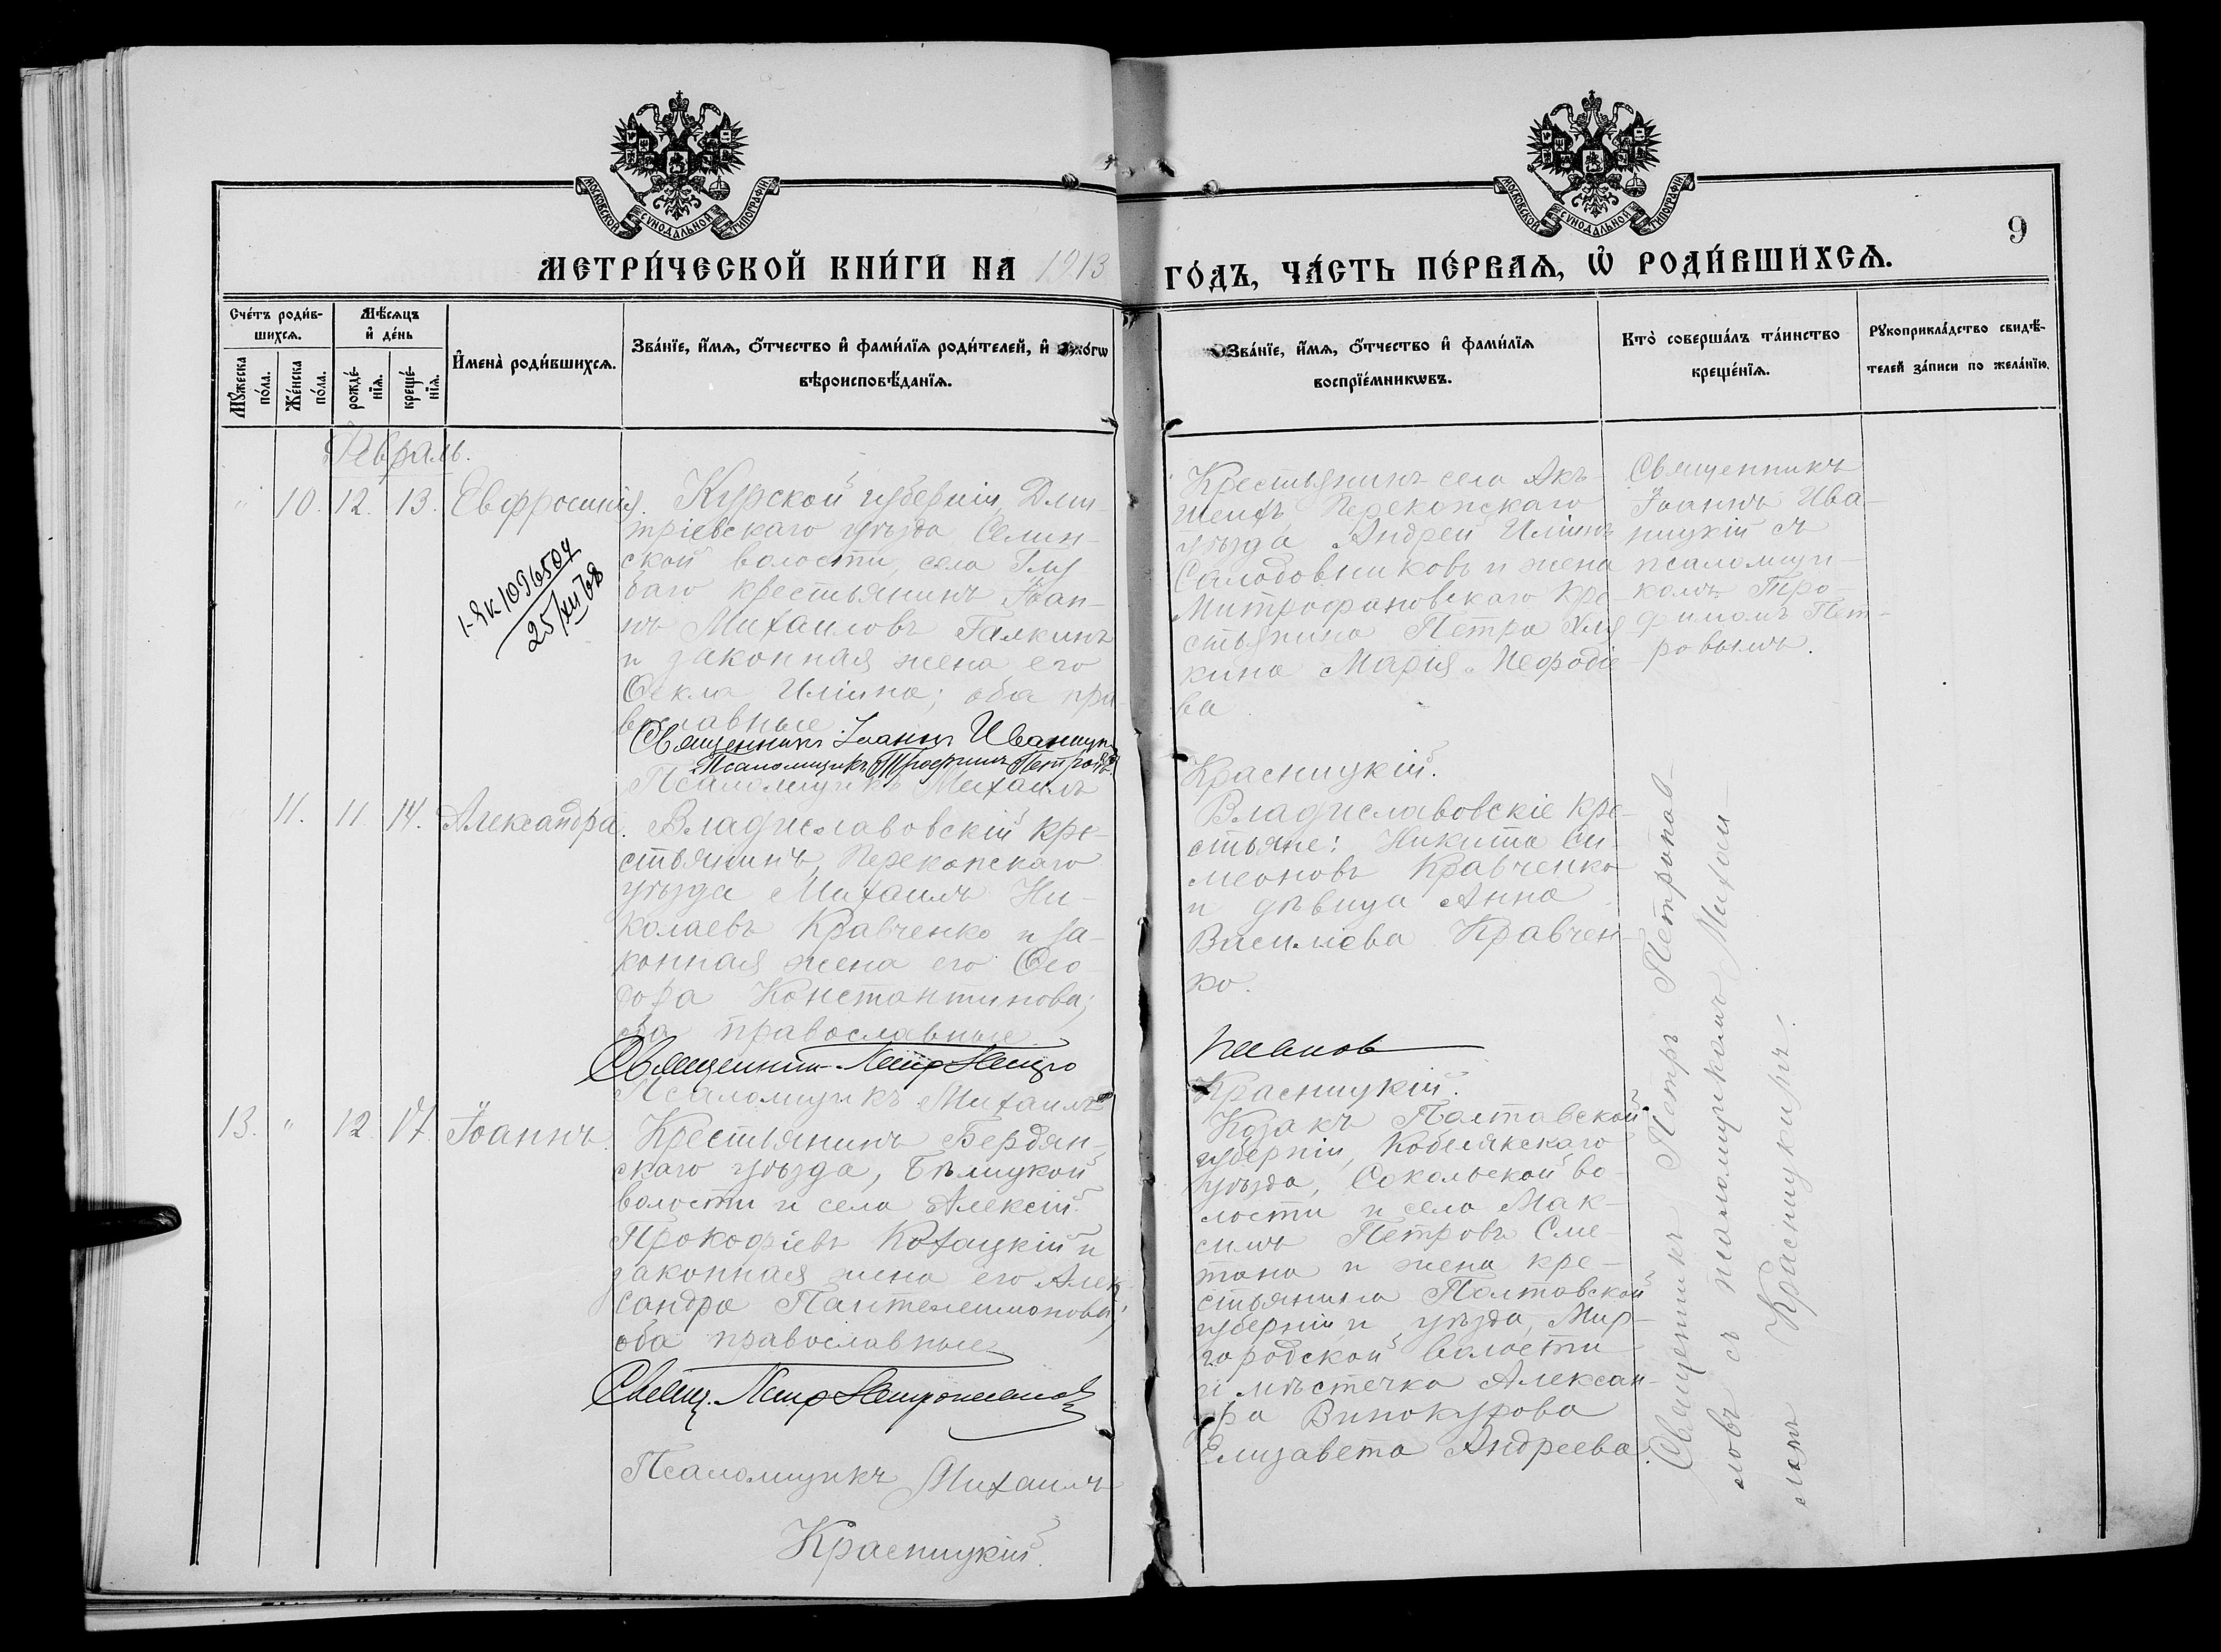 МОСКОВСКОЙ СѴНОДАЛЬНОЙ ТИПОГРАФІИ
МОСКОВСКОЙ СѴНОДАЛЬНОЙ ТИПОГРАФІИ
9
МЕТРИ́ЧЕСКОЙ КНИ́ГИ НА 1913 ГО́ДЪ, ЧА́СТЬ ПЕ́РВАѦ, Ѡ҆ РОДИ́ВШИХСѦ.
Сче́тъ роди́в-
шихсѧ.
Мѣ́сяцъ
и҆ де́нь
Мꙋ́жеска
по́ла.
Же́нска
по́ла.
рожде́-
нїѧ.
креще́-
нїѧ.
И҆мена̀ роди́вшихсѧ.
Зва́нїе, и҆́мѧ, ѻ҆́тчество и҆ фами́лїѧ роди́телей, и҆
вѣроисповѣ́данїѧ.
Зва́нїе, и҆́мѧ, ѻ҆́тчество и҆ фами́лїѧ
воспрїе́мникѡвъ.
Кто̀ соверша́лъ та́инство
креще́нїѧ.
Рꙋкоприкла́дство свидѣ́-
телей за́писи по жела́нїю.
Февраль.
" 10. 12. 13. Евфросинія.
1-ЯК 1096504
25/XII 68
Курской губерніи, Дми-
тріевскаго уѣзда, Селин-
ской волости, села
баго крестьянинъ Іоан-
нъ Михаиловъ Галкинъ
и законная жена его
Ѳекла Иліина; оба пра
вославные.
Священникъ Іоаннъ Иваницкій
Псаломщикъ Трофимъ Петровъ.
Псаломщикъ Михаилъ
Крестьянинъ села Акъ-
Шеихъ, Перекопскаго
уѣзда Андрей Иліинъ
Солодовниковъ и жена
Митрофановскаго кре-
стьянина Петра
кина Марія Меѳодіе
ва
Священникъ
Іоаннъ Ива-
ницкій съ
псаломщи-
комъ Тро-
фимомъ Пет-
ровымъ.
Красницкій.
11. 11. 14. Александра.
Владиславовскій кре-
стьянинъ, Перекопскаго
уѣзда Михаилъ Ни-
колаевъ Кравченко и за-
конная жена его Ѳео-
дора Константинова;
оба православные
Священникъ Петръ Петро
Псаломщикъ Михаилъ
Владиславовскіе кре-
стьяне: Никита Си-
меоновъ Кравченко
и дѣвица Анна
Василіева Кравчен-
ко.
павловъ
Красницкій.
13. " 12. 17. Іоаннъ.
Крестьянинъ Бердян-
скаго уѣзда, Бѣлицкой
волости и села Алексій
Прокофіевъ Кохацкій и
законная жена его Алек
сандра Пантелеимонова;
оба православные
Свящ. Петръ Петропавловъ
Псаломщикъ Михаилъ
Красницкій.
Козакъ Полтавской
губерніи, Кобелякскаго
уѣзда, Сокольской во-
лости и села Мак-
симъ Петровъ Сме-
тана и жена кре-
стьянина Полтавской
губерніи и уѣзда, Мир-
городской волости
и мѣстечка Алексан-
дра Винокурова
Елизавета Андреева.
Священникъ Петръ Петропав-
ловъ съ псаломщикомъ Михаи-
ломъ Красницкимъ.